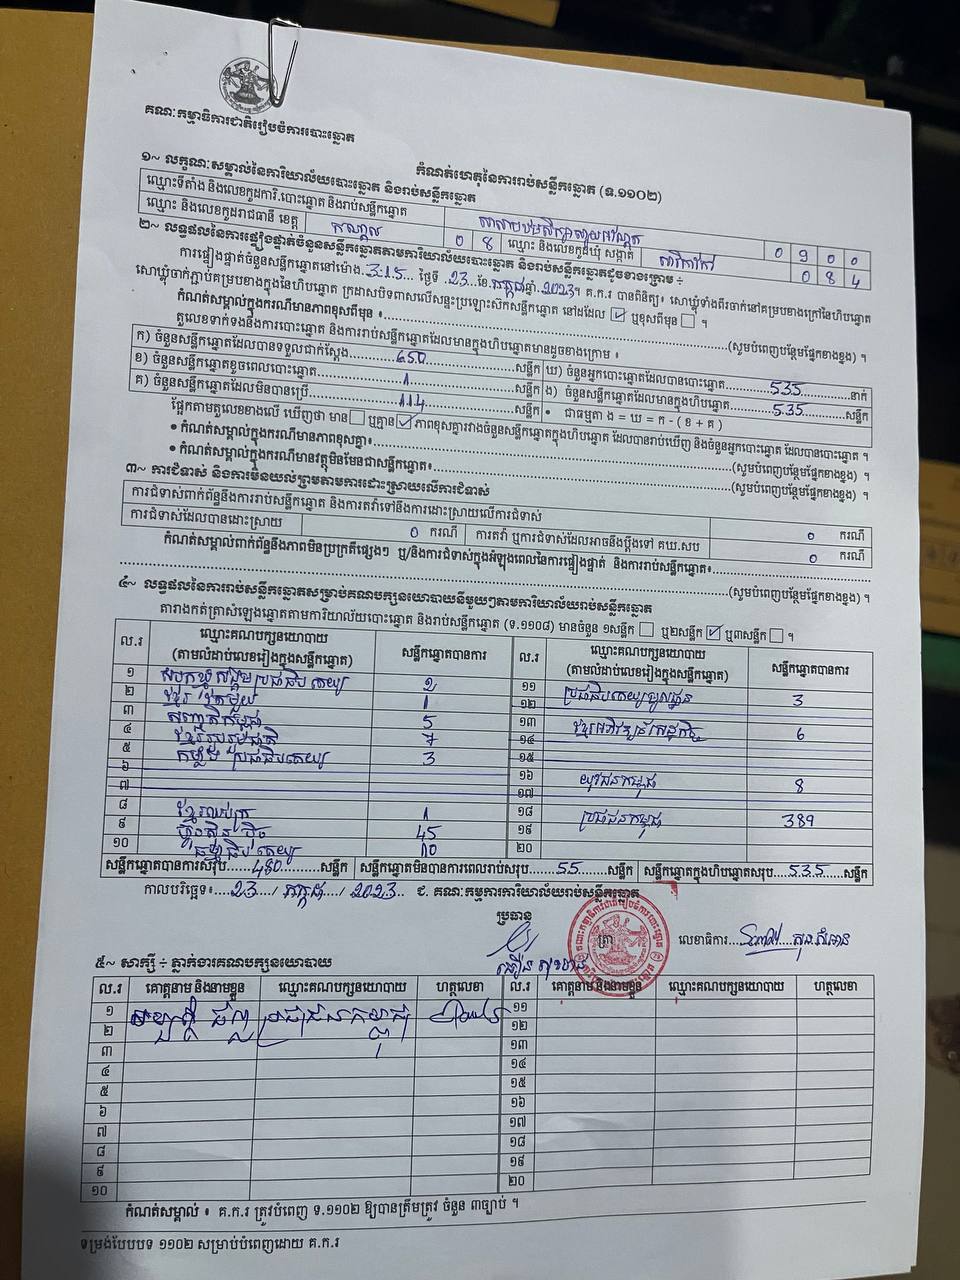 គណៈកម្មាធិការជាតិរៀបចំការបោះឆ្នោត
កំណត់ហេតុនៃការរាប់សន្លឹកឆ្នោត (ទ.១១០២)
១~ លក្ខណៈសម្គាល់នៃការិយាល័យបោះឆ្នោត និងរាប់សន្លឹកឆ្នោត
ឈ្មោះទីតាំង និងលេខកូដការិ.បោះឆ្នោត និងរាប់សន្លឹកឆ្នោត 0 9 0 0
ឈ្មោះ និងលេខកូដរាជធានី ខេត្ត កណ្តាល 0 8 ឈ្មោះ និងលេខកូដឃុំ សង្កាត់ 0 8 4
២~ លទ្ធផលនៃការផ្ទៀងផ្ទាត់ចំនួនសន្លឹកឆ្នោតតាមការិយាល័យបោះឆ្នោត និងរាប់សន្លឹកឆ្នោតដូចខាងក្រោម ÷
ការផ្ទៀងផ្ទាត់ចំនួនសន្លឹកឆ្នោតនៅម៉ោង 3:15 ថ្ងៃទី 23 ខែ កក្កដា ឆ្នាំ 2023។ គ.ក.រ បានពិនិត្យ៖ សោឃ្លុំទាំងពីរចាក់នៅគម្របខាងក្រៅនៃហិបឆ្នោត
សោឃ្លុំចាក់ភ្ជាប់គម្របខាងក្នុងនៃហិបឆ្នោត ក្រដាសបិទពាសលើសន្ទះប្រឡោះស៊កសន្លឹកឆ្នោត នៅដដែល ☑ ឬខុសពីមុន ☐ ។
កំណត់សម្គាល់ក្នុងករណីមានភាពខុសពីមុន ៖ (សូមបំពេញបន្ថែមផ្នែកខាងខ្នង) ។
តួលេខទាក់ទងនឹងការបោះឆ្នោត និងការរាប់សន្លឹកឆ្នោតដែលមានក្នុងហិបឆ្នោតមានដូចខាងក្រោម ៖
ក) ចំនួនសន្លឹកឆ្នោតដែលបានទទួលជាក់ស្តែង 650 សន្លឹក ឃ) ចំនួនអ្នកបោះឆ្នោតដែលបានបោះឆ្នោត 535 នាក់
ខ) ចំនួនសន្លឹកឆ្នោតខូចពេលបោះឆ្នោត 1 សន្លឹក ង) ចំនួនសន្លឹកឆ្នោតដែលមានក្នុងហិបឆ្នោត 535 សន្លឹក
គ) ចំនួនសន្លឹកឆ្នោតដែលមិនបានប្រើ 114 សន្លឹក • ជាធម្មតា ង = ឃ = ក - ( ខ + គ )
ផ្អែកតាមតួលេខខាងលើ ឃើញថា មាន ☐ ឬគ្មាន ☑ ភាពខុសគ្នារវាងចំនួនសន្លឹកឆ្នោតក្នុងហិបឆ្នោត ដែលបានរាប់ឃើញ និងចំនួនអ្នកបោះឆ្នោត ដែលបានបោះឆ្នោត ។
• កំណត់សម្គាល់ក្នុងករណីមានភាពខុសគ្នា៖ (សូមបំពេញបន្ថែមផ្នែកខាងខ្នង) ។
• កំណត់សម្គាល់ក្នុងករណីមានវត្ថុមិនមែនជាសន្លឹកឆ្នោត៖ (សូមបំពេញបន្ថែមផ្នែកខាងខ្នង) ។
៣~ ការជំទាស់ និងការមិនយល់ព្រមតាមការដោះស្រាយលើការជំទាស់
ការជំទាស់ពាក់ព័ន្ធនឹងការរាប់សន្លឹកឆ្នោត និងការតវ៉ាទៅនឹងការដោះស្រាយលើការជំទាស់ 0 ករណី
ការជំទាស់ដែលបានដោះស្រាយ 0 ករណី ការតវ៉ា ឬការជំទាស់ដែលអាចនឹងប្តឹងទៅ គឃ.សប 0 ករណី
កំណត់សម្គាល់ពាក់ព័ន្ធនឹងភាពមិនប្រក្រតីផ្សេងៗ ឬ/និងការជំទាស់ក្នុងអំឡុងពេលនៃការផ្ទៀងផ្ទាត់ និងការរាប់សន្លឹកឆ្នោត៖
(សូមបំពេញបន្ថែមផ្នែកខាងខ្នង) ។
៤~ លទ្ធផលនៃការរាប់សន្លឹកឆ្នោតសម្រាប់គណបក្សនយោបាយនីមួយៗតាមការិយាល័យរាប់សន្លឹកឆ្នោត
តារាងកត់ត្រាសំឡេងឆ្នោតតាមការិយាល័យបោះឆ្នោត និងរាប់សន្លឹកឆ្នោត (ទ.១១០៨) មានចំនួន ១សន្លឹក ☐ ឬ២សន្លឹក ☑ ឬ៣សន្លឹក ☐ ។
ល.រ ឈ្មោះគណបក្សនយោបាយ (តាមលំដាប់លេខរៀងក្នុងសន្លឹកឆ្នោត) សន្លឹកឆ្នោតបានការ ល.រ ឈ្មោះគណបក្សនយោបាយ (តាមលំដាប់លេខរៀងក្នុងសន្លឹកឆ្នោត) សន្លឹកឆ្នោតបានការ
១ សំបុកឃ្មុំសង្គមប្រជាធិបតេយ្យ ១១
២ ខ្មែរតែមួយ 1 ១២ 3
៣ សញ្ជាតិកម្ពុជា 5 ១៣ ខ្មែរអភិវឌ្ឍន៍សេដ្ឋកិច្ច 6
៤ ខ្មែររួបរួមជាតិ 7 ១៤
៥ កម្លាំងប្រជាធិបតេយ្យ 3 ១៥
៦ ១៦ យុវជនកម្ពុជា 8
៧ ១៧
៨ ខ្មែរឈប់ក្រ 1 ១៨ ប្រជាជនកម្ពុជា 389
៩ ហ្វ៊ុនស៊ិនប៉ិច 45 ១៩
១០ ធម្មាធិបតេយ្យ 10 ២០
សន្លឹកឆ្នោតបានការសរុប 480 សន្លឹក សន្លឹកឆ្នោតមិនបានការពេលរាប់សរុប 55 សន្លឹក សន្លឹកឆ្នោតក្នុងហិបឆ្នោតសរុប 535 សន្លឹក
កាលបរិច្ឆេទ៖ 23 / កក្កដា / 2023 ជ. គណៈកម្មការការិយាល័យរាប់សន្លឹកឆ្នោត
ប្រធាន
ត្រា លេខាធិការ
៥~ សាក្សី ÷ ភ្នាក់ងារគណបក្សនយោបាយ
ល.រ គោត្តនាម និងនាមខ្លួន ឈ្មោះគណបក្សនយោបាយ ហត្ថលេខា ល.រ គោត្តនាម និងនាមខ្លួន ឈ្មោះគណបក្សនយោបាយ ហត្ថលេខា
១ ប្រជាជនកម្ពុជា ១១
២ ១២
៣ ១៣
៤ ១៤
៥ ១៥
៦ ១៦
៧ ១៧
៨ ១៨
៩ ១៩
១០ ២០
កំណត់សម្គាល់ ៖ គ.ក.រ ត្រូវបំពេញ ទ.១១០២ ឱ្យបានត្រឹមត្រូវ ចំនួន ៣ច្បាប់ ។
ទម្រង់បែបបទ ១១០២ សម្រាប់បំពេញដោយ គ.ក.រ